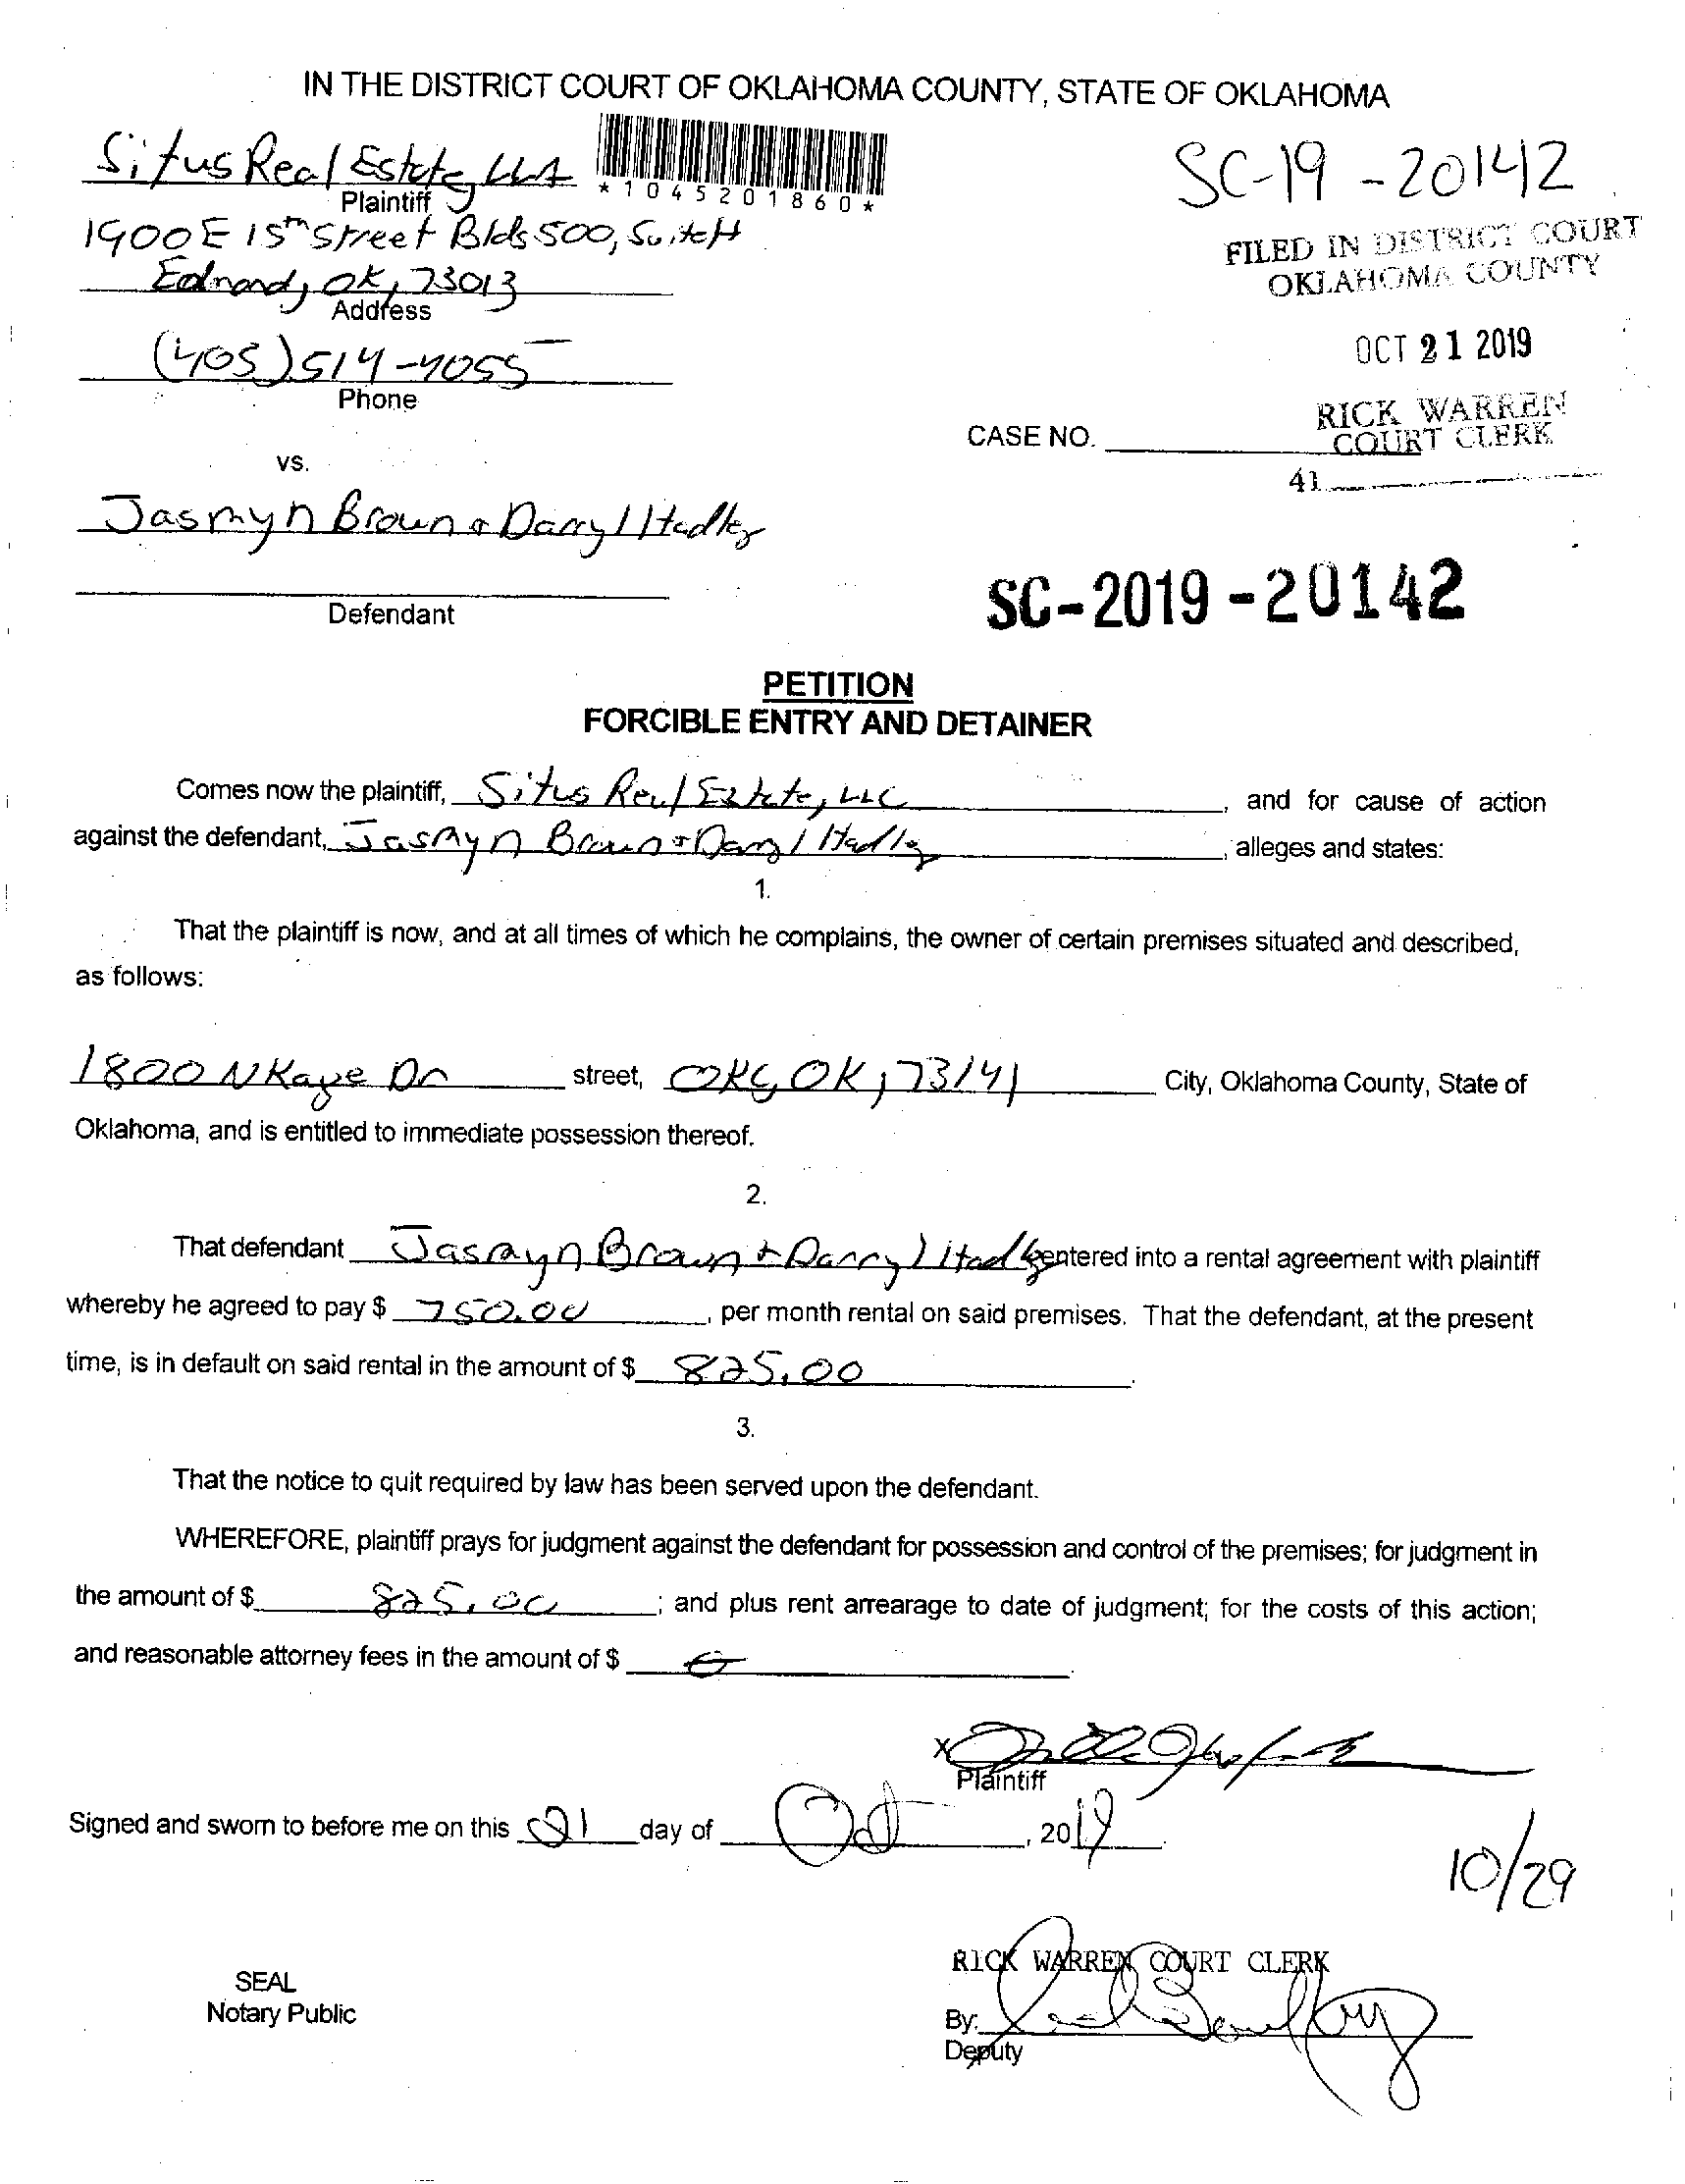 IN THE DISTRICT COURT OF OKLAHOMA COUNTY, STATE OF OKLAHOMA
Situs Real Estate, LLC
Plaintiff
*1045201860*
SC-19-20142
1900 E 15th Street Bldg 500, Suite H
FILED IN DISTRICT COURT
OKLAHOMA COUNTY
Edmond, OK, 73013
Address
OCT 21 2019
(405) 514-4055
Phone
RICK WARREN
COURT CLERK
CASE NO.
41
vs.
Jasmyn Brown + Darryl Hadley
Defendant
SC-2019-20142
PETITION
FORCIBLE ENTRY AND DETAINER
Comes now the plaintiff, Situs Real Estate, LLC, and for cause of action
against the defendant, Jasmyn Brown + Darryl Hadley, alleges and states:
1.
That the plaintiff is now, and at all times of which he complains, the owner of certain premises situated and described,
as follows:
1800 N Kaye Dr street, OKC, OK, 73141 City, Oklahoma County, State of
Oklahoma, and is entitled to immediate possession thereof.
2.
That defendant Jasmyn Brown + Darryl Hadley entered into a rental agreement with plaintiff
whereby he agreed to pay $ 750.00, per month rental on said premises. That the defendant, at the present
time, is in default on said rental in the amount of $ 825.00.
3.
That the notice to quit required by law has been served upon the defendant.
WHEREFORE, plaintiff prays for judgment against the defendant for possession and control of the premises; for judgment in
the amount of $ 825.00; and plus rent arrearage to date of judgment; for the costs of this action;
and reasonable attorney fees in the amount of $ 0.
X
Plaintiff
Signed and sworn to before me on this 21 day of Oct, 2019
10/29
RICK WARREN COURT CLERK
SEAL
Notary Public
By:
Deputy